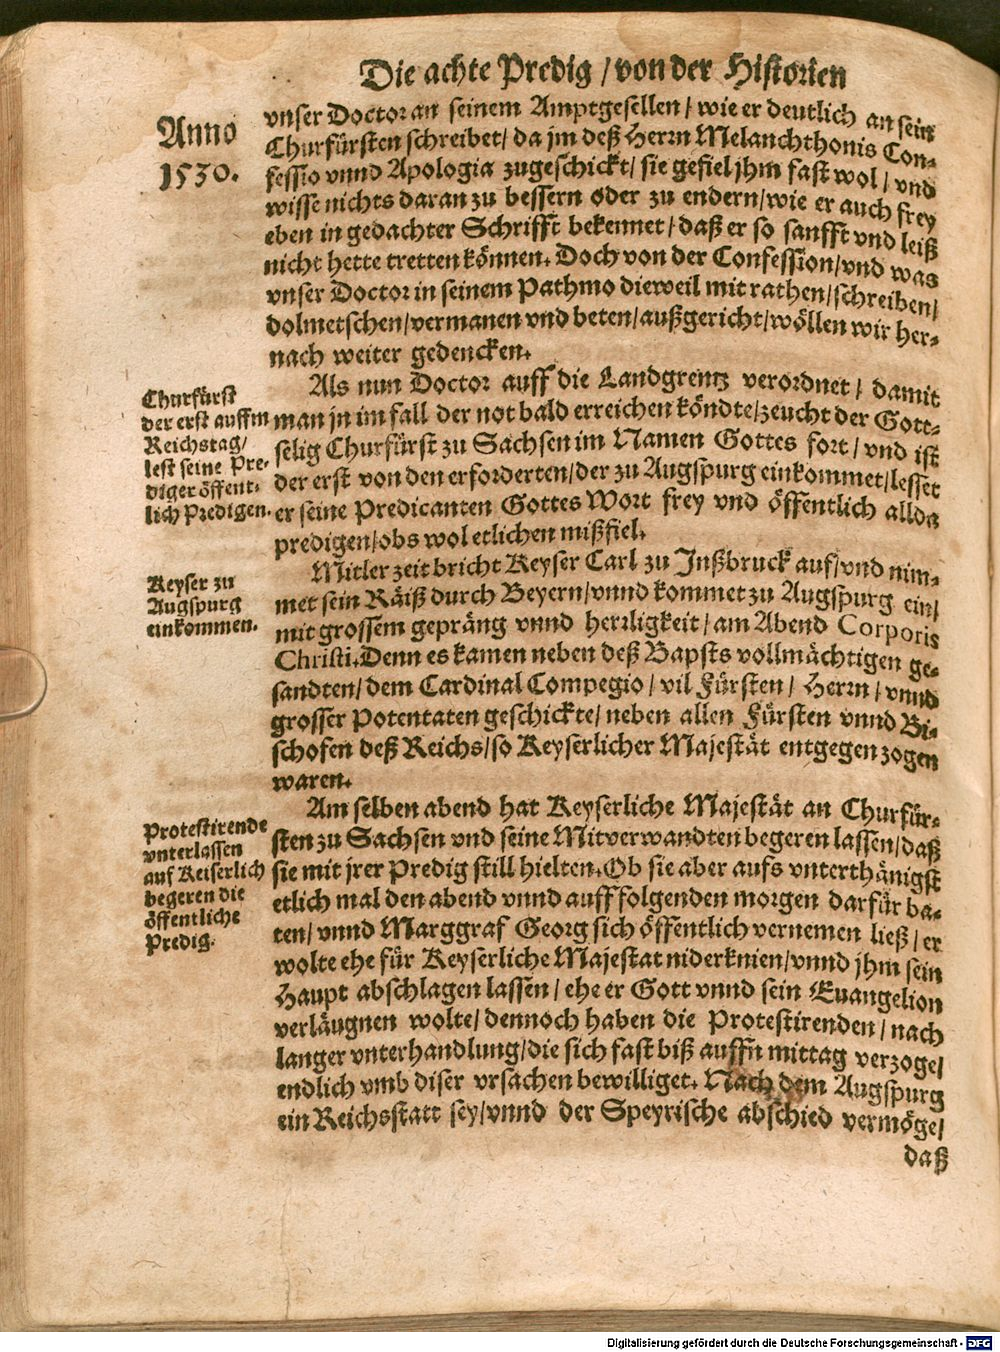 Die achte Predig / von der Historien
Anno
1530.
vnser Doctor an seinem Amptgesellen / wie er deutlich an sein
Churfürsten schreibet / da jm deß Herrn Melanchthonis Con-
fessio vnnd Apologia zugeschickt / sie gefiel jhm fast wol / vnd
wisse nichts daran zu bessern oder zu endern / wie er auch frey
eben in gedachter Schrifft bekennet / daß er so sanfft vnd leiß
nicht hette tretten können. Doch von der Confession / vnd was
vnser Doctor in seinem Pathmo dieweil mit rathen / schreiben /
dolmetschen / vermanen vnd beten / außgericht / wöllen wir her-
nach weiter gedencken.
Churfürst
der erst auffm
Reichstag /
lest seine Pre-
diger öffent-
lich Predigen.
Als nun Doctor auff die Landgrentz verordnet / damit
man jn im fall der not bald erreichen köndte / zeucht der Gott-
selig Churfürst zu Sachsen im Namen Gottes fort / vnd ist
der erst von den erforderten / der zu Augspurg einkommet / lesset
er seine Predicanten Gottes Wort frey vnd öffentlich allda
predigen / obs wol etlichen mißfiel.
Keyser zu
Augspurg
einkommen.
Mitler zeit bricht Keyser Carl zu Inßbruck auf / vnd nim-
met sein Räiß durch Beyern / vnnd kommet zu Augspurg ein /
mit grossem gepräng vnnd herrligkeit / am Abend Corporis
Christi. Denn es kamen neben deß Bapsts vollmächtigen ge-
sandten / dem Cardinal Compegio / vil Fürsten / Herrn / vnnd
grosser Potentaten geschickte / neben allen Fürsten vnnd Bi-
schofen deß Reichs / so Keyserlicher Majestät entgegen zogen
waren.
Protestirende
vnterlassen
auf Keiserlich
begeren die
öffentliche
Predig.
Am selben abend hat Keyserliche Majestät an Churfür-
sten zu Sachsen vnd seine Mitverwandten begeren lassen / daß
sie mit jrer Predig still hielten. Ob sie aber aufs vnterthänigst
etlich mal den abend vnnd auff folgenden morgen darfür ba-
ten / vnnd Marggraf Georg sich öffentlich vernemen ließ / er
wolte ehe für Keyserliche Majestat niderknien / vnnd jhm sein
Haupt abschlagen lassen / ehe er Gott vnnd sein Euangelion
verläugnen wolte / dennoch haben die Protestirenden / nach
langer vnterhandlung / die sich fast biß auffn mittag verzoge /
endlich vmb diser vrsachen bewilliget. Nach dem Augspurg
ein Reichsstatt sey / vnnd der Speyrische abschied vermöge /
daß
Digitalisierung gefördert durch die Deutsche Forschungsgemeinschaft - DFG